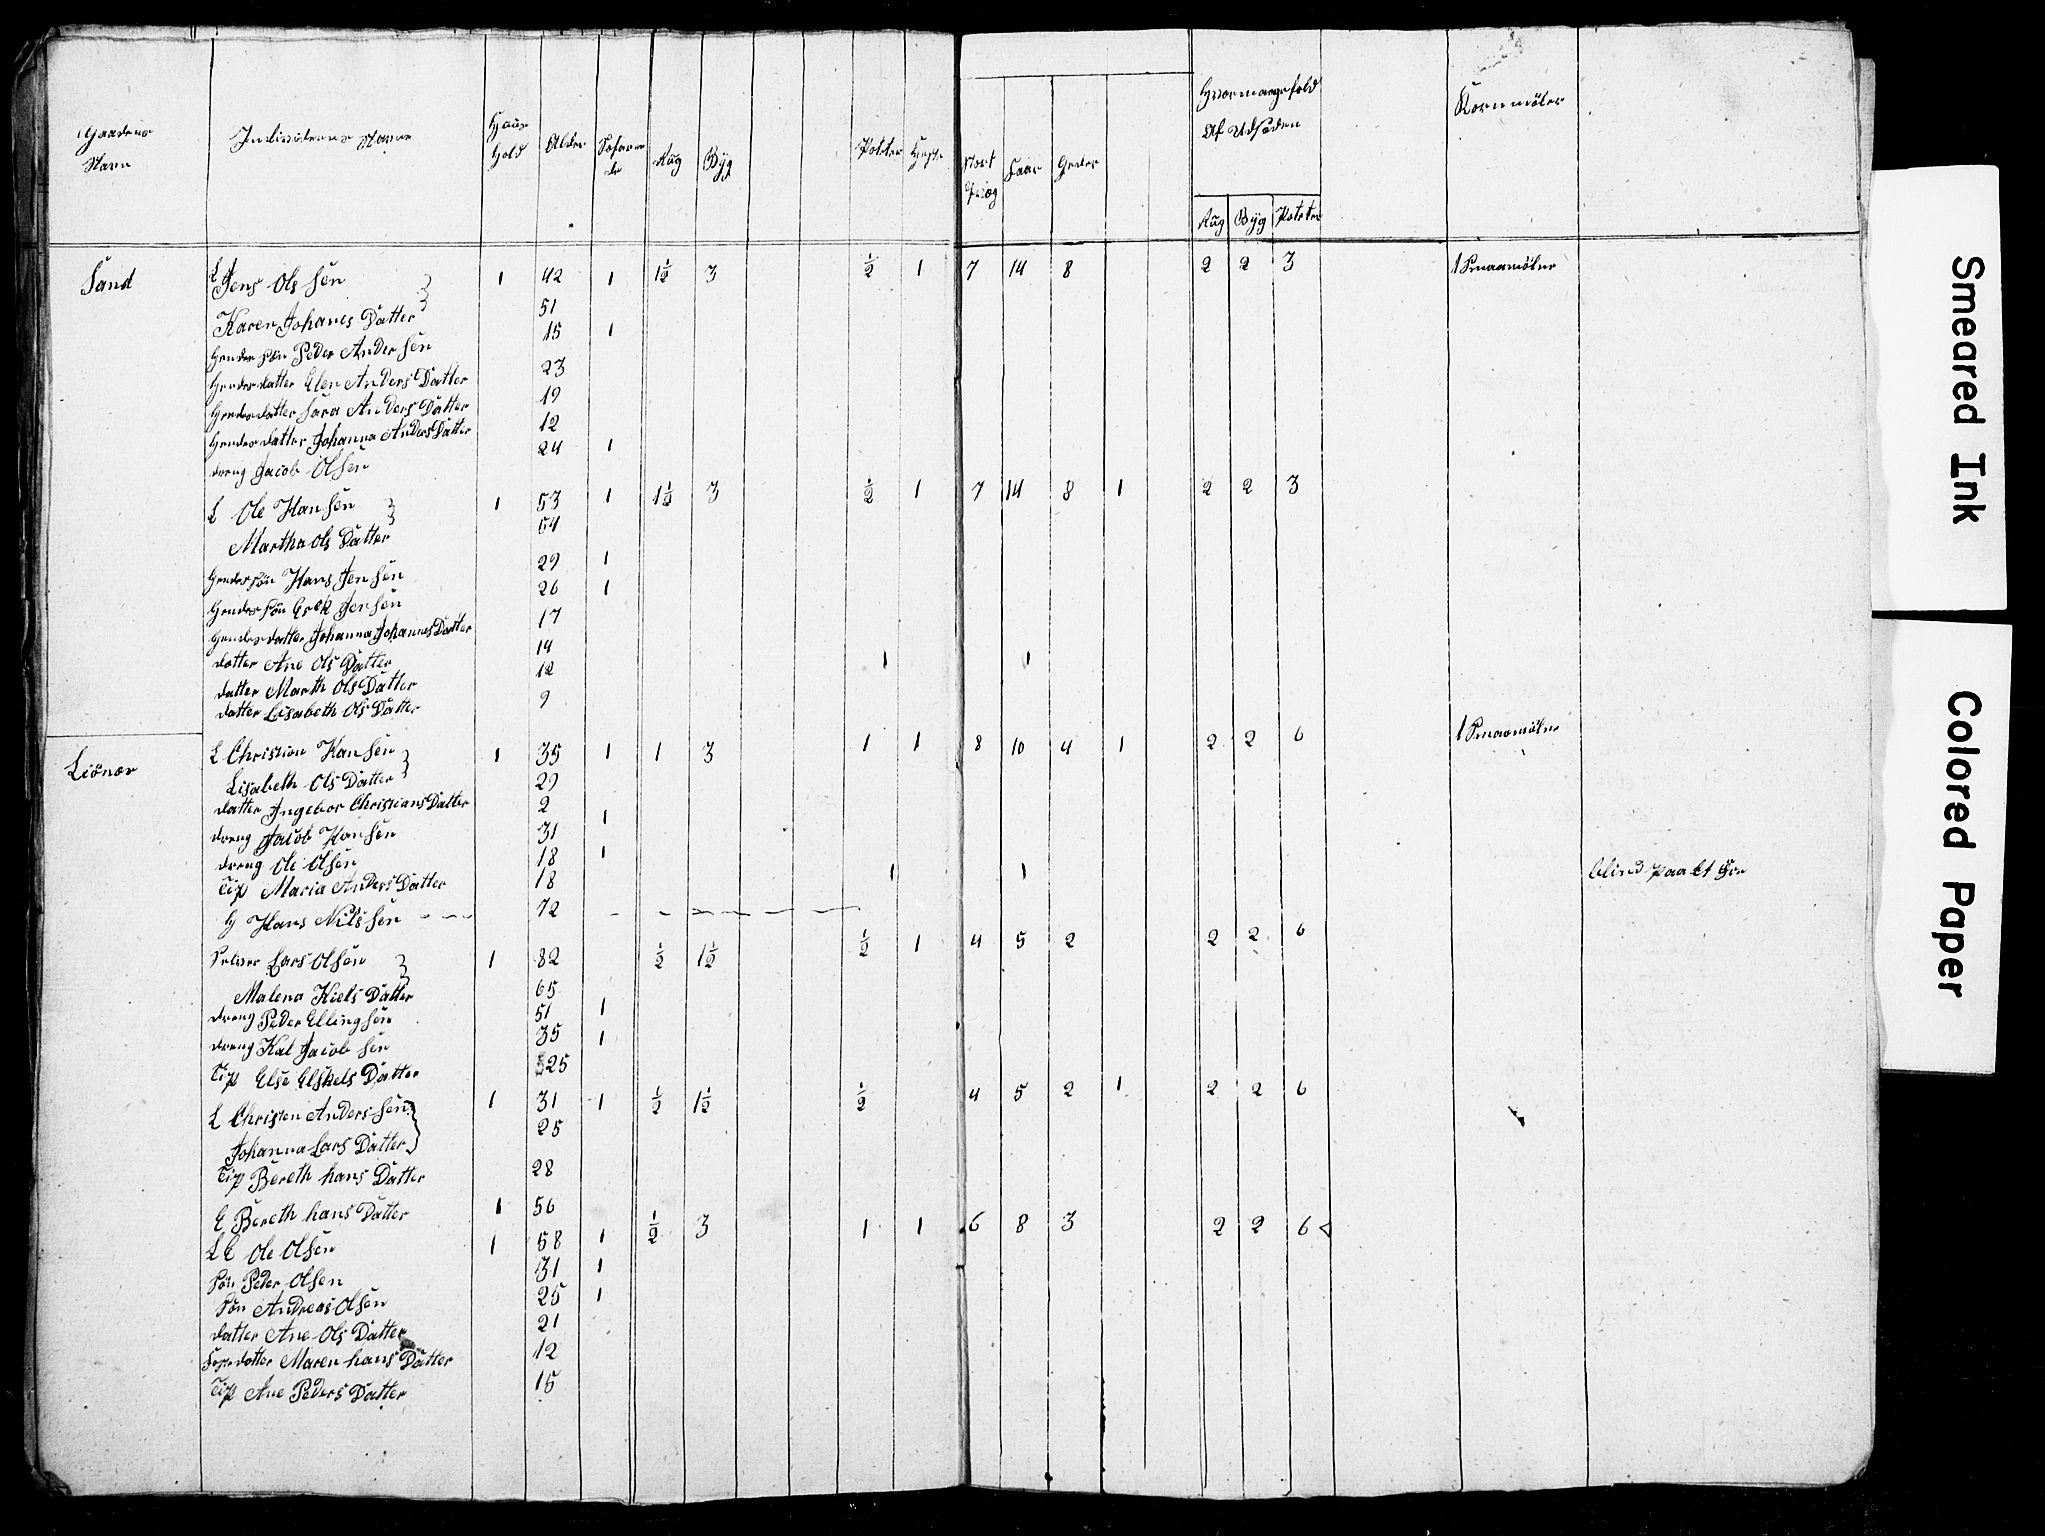 Gaardens Navn
Individernes Navne
Huus hold
Alder
Søfarende
Rug
Byg
Poteter
Heste
Stort Qvæg
Faar
Geder
Hvormangefold Af Udsæden
Rug Byg Poteter
Kornmøler
Sand
L Jens Olsen 1 42 1 1½ 3 ½ 1 7 14 8 2 2 3 1 Smaamølne
Karen Johanes Datter 51
Hendes søn Peder Andersen 15 1
Hendes datter Elen Anders Datter 23
Hendes datter Sara Anders Datter 19
Hendes datter Johanna Anders Datter 12
dreng Jacob Olsen 24 1
L Ole Hansen 1 53 1 1½ 3 ½ 1 7 14 8 1 2 2 3
Martha Ols Datter 54
Hendes søn Hans Jensen 29 1
Hendes søn Erek Jensen 26 1
Hendes datter Johanna Johannes Datter 17
datter Ane Ols Datter 14
datter Marth Ols Datter 12 1 1
datter Lisabeth Ols Datter 9
Liønæs
L Christian Hansen 1 35 1 1 3 1 1 8 10 4 1 2 2 6 1 Smaamølne
Lisabeth Ols Datter 29
datter Ingebor Christians Datter 2
dreng Jacob Hansen 31 1
dreng Ole Olsen 18 1
Tip Maria Anders Datter 18 1 1
Hans Nilssen 72 blind paa et Øie
Lars Olsen 1 82 ½ 1½ ½ 1 4 5 2 2 2 6
Malena Kiels Datter 65
dreng Peder Ellingsen 51 1
dreng Kal Jacobsen 35 1
Tip Else Elskels Datter 25
L Christen Anderssen 1 31 1 ½ 1½ ½ 4 5 2 1 2 2 6
Johanna Lars Datter 25
Tip Bereth hans Datter 28
E Bereth hans Datter 1 56
L E Ole Olsen 1 58 1 ½ 3 1 1 6 8 3 2 2 6
søn Peder Olsen 31 1
søn Andreas Olsen 25 1
datter Ane Ols Datter 21
datter Maren hans Datter 12
Tip Ane Peders Datter 15
Smeared Ink
Colored Paper